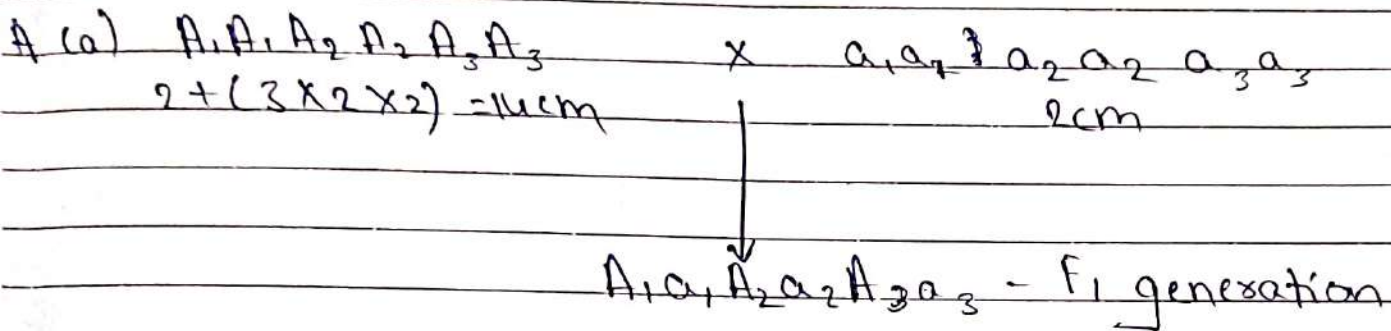 A (a) A₁A₁A₂A₂A₃A₃ × a₁a₁ a₂a₂ a₃a₃
2+(3×2×2) =14cm 2cm
A₁a₁A₂a₂A₃a₃ - F₁ generation